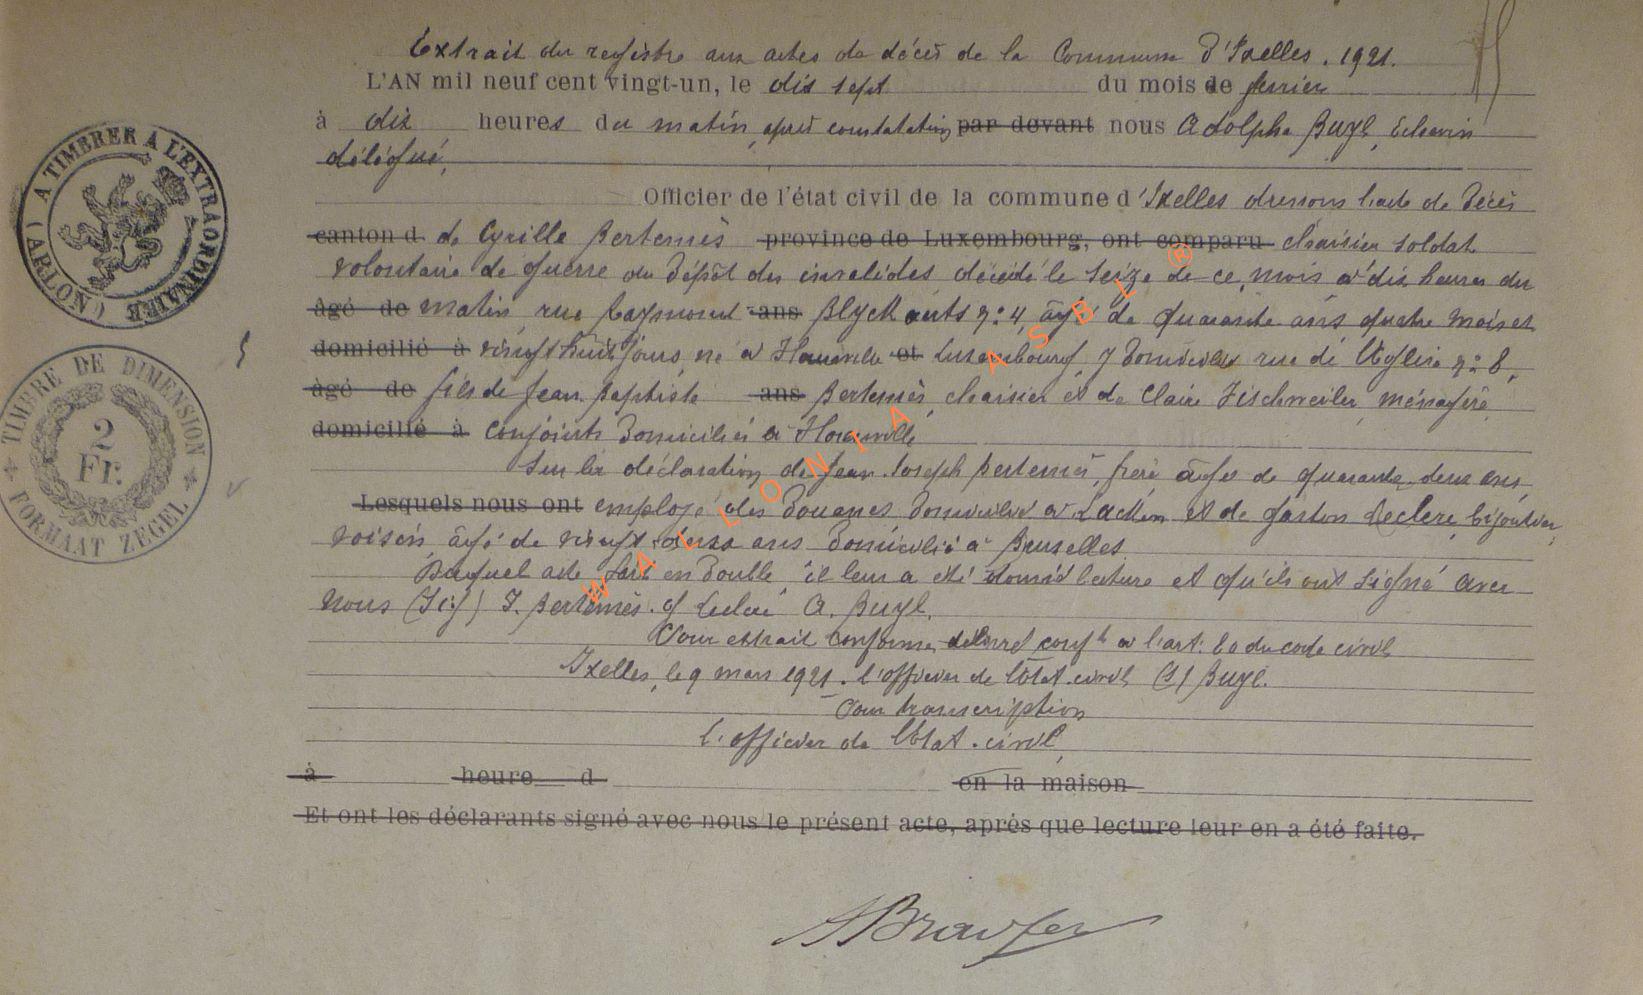 Extrait du registre aux actes de décès de la Commune d'Ixelles. 1921.
L'AN mil neuf cent vingt-un, le dix sept du mois de fevrier
à dix heures du matin, après constatation par devant nous Adolphe Buyl, Echevin
délégué,
Officier de l'état civil de la commune d'Ixelles dressons l'acte de décès
canton d de Cyrille Bertemès province de Luxembourg, ont comparu chaisier soldat
volontaire de guerre au dépôt des invalides décédé le seize de ce mois à dix heures du
âgé de matin, rue ans Blyckaerts n: 4 âgé de quarante ans quatre mois et
domicilié à vingt huit jours, né à et Luxembourg, y domicilié rue de l'Eglise n: 8,
âgé de fils de Jean Baptiste ans Bertemès, chaisier et de Claire Fischweiler, ménagère
domicilié à conjoints domiciliés à
Sur la déclaration de Jean Joseph Bertemès, frère âgé de quarante deux ans,
Lesquels nous ont employé des Douanes domicilié à Laeken et de Gaston Leclere, bijoutier,
voisin, âgé de vingt ans domicilié à Bruxelles.
Duquel acte fait en double il leur a été donné lecture et qu'ils ont signé avec
nous (Sig) J. Bertemès. G Leclere A. Buyl.
Pour extrait conforme, délivré conft à l'art: 80 du code civil
Ixelles, le 9 mars 1921. l'officier de l'état civil (S) Buyl.
Pour transcription
l'officier de l'Etat civil
à heure d en la maison
Et ont les déclarants signé avec nous le présent acte, après que lecture leur en a été faite.
A TIMBRER A L'EXTRAORDINAIRE (ARLON)
TIMBRE DE DIMENSION
2
Fr.
FORMAAT ZEGEL
WALLONIA ASBL ®